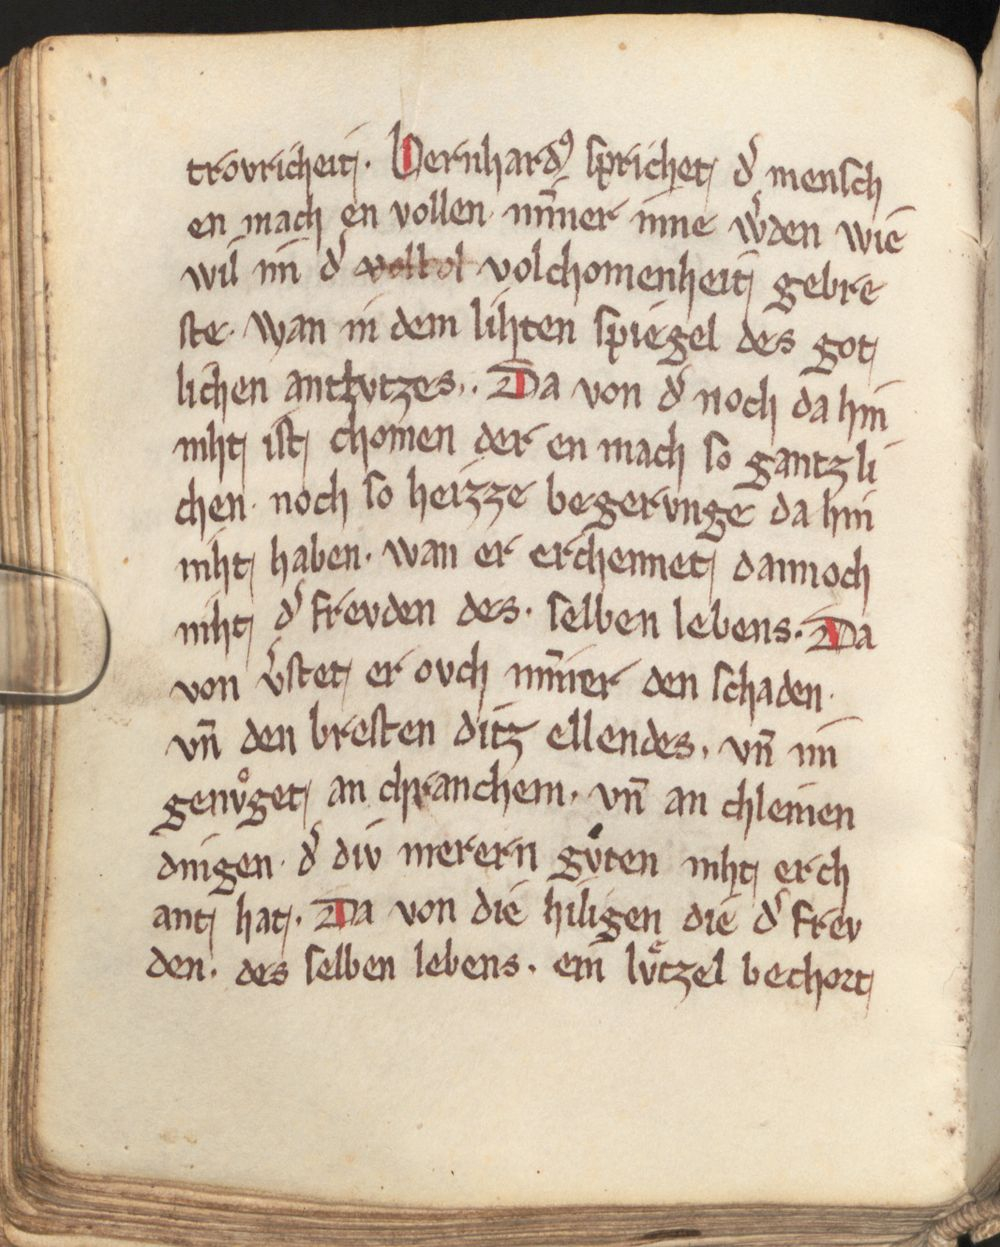 trovricheit. Bernhardꝰ sprichet d᾽ mensch
en mach en vollen nim̄er inne w᾽den wie
vil im d᾽ volchomenheit gebre
ste. wan in dem lihten spiegel des got
lichen antlvtzes.. Da von d᾽ noch da hin
niht ist chomen der en mach so gantzli
chen. noch so heizze begervnge da hin
niht haben. wan er erchennet dannoch
niht d᾽ frevden des. selben lebens. Da
von v᾽stet er ovch nim̄er den schaden.
vn̄ den bresten ditz ellendes. vn̄ im
genvͦget an chranchem. vn̄ an chleinen
dingen. d᾽ div merern gvͦten niht erch
ant hat. Da von die hiligen die d᾽ frev
den. des selben lebens. ein lvͤtzel bechort